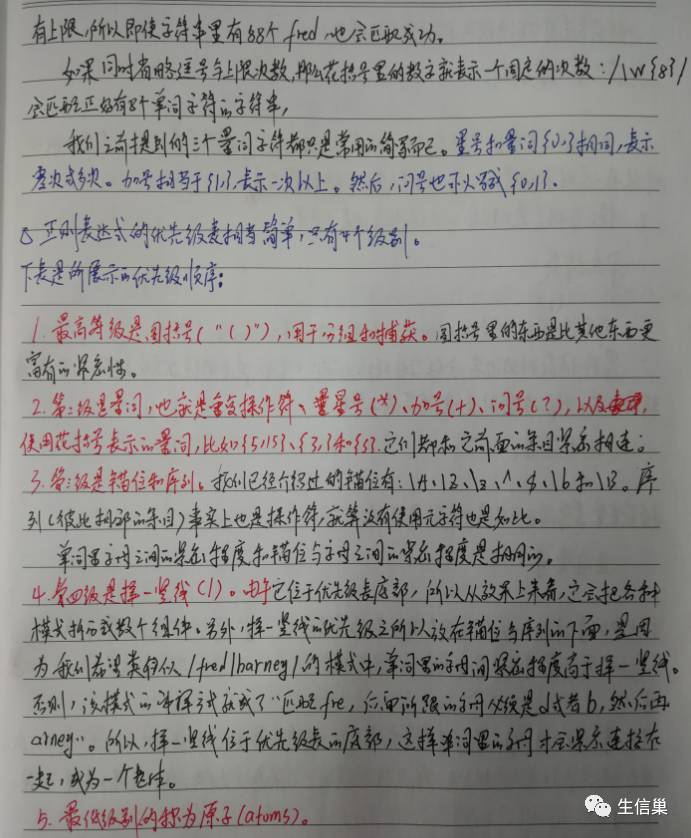 有上限,所以即使字符串里有88个fred,也会匹配成功。
如果同时省略逗号与上限次数,那么花括号里的数字就表示一个固定的次数:/\w{8}/
会匹配正好有8个单词字符的字符串,
我们之前提到的三个量词字符都只是常用的简写而已。星号和量词{0,}相同,表示
零次或多次。加号相当于{1,},表示一次以上。然后,问号也可以写成{0,1}.
正则表达式的优先级表相当简单,只有4个级别。
下表是所展示的优先级顺序:
1.最高等级是圆括号("()"),用于分组和捕获。圆括号里的东西总是比其他东西更
富有的紧密性。
2.第二级是量词,也就是重复操作符、星号(*)、加号(+)、问号(?),以及
使用花括号表示的量词,比如{5,15}、{3,}和{5}.它们都和之前面的条目紧密相连;
3.第三级是锚位和序列。我们已经介绍过的锚位有:\A、\Z、\z、^、$、\b和\B。序
列(彼此相邻的条目)事实上也是操作符,就算没有使用元字符也是如此。
单词里字母之间的紧密程度和锚位与字母之间的紧密程度是相同的。
4.第四级是择一竖线(|)。由于它位于优先级表底部,所以从效果上来看,它会把各种
模式拆分成数个组件。另外,择一竖线的优先级之所以放在锚位与序列的下面,是因
为我们希望类似/fred|barney/的模式中,单词里的字母间紧密程度高于择一竖线。
否则,该模式的选择方式就成了“匹配fre,后面所跟的字母必须是d或者b,然后再
arney”。所以,择一竖线位于优先级表的底部,这样单词里的字母才会紧密连接在
一起,成为一个整体。
5.最低级别的称为原子(atoms)。
生信巢